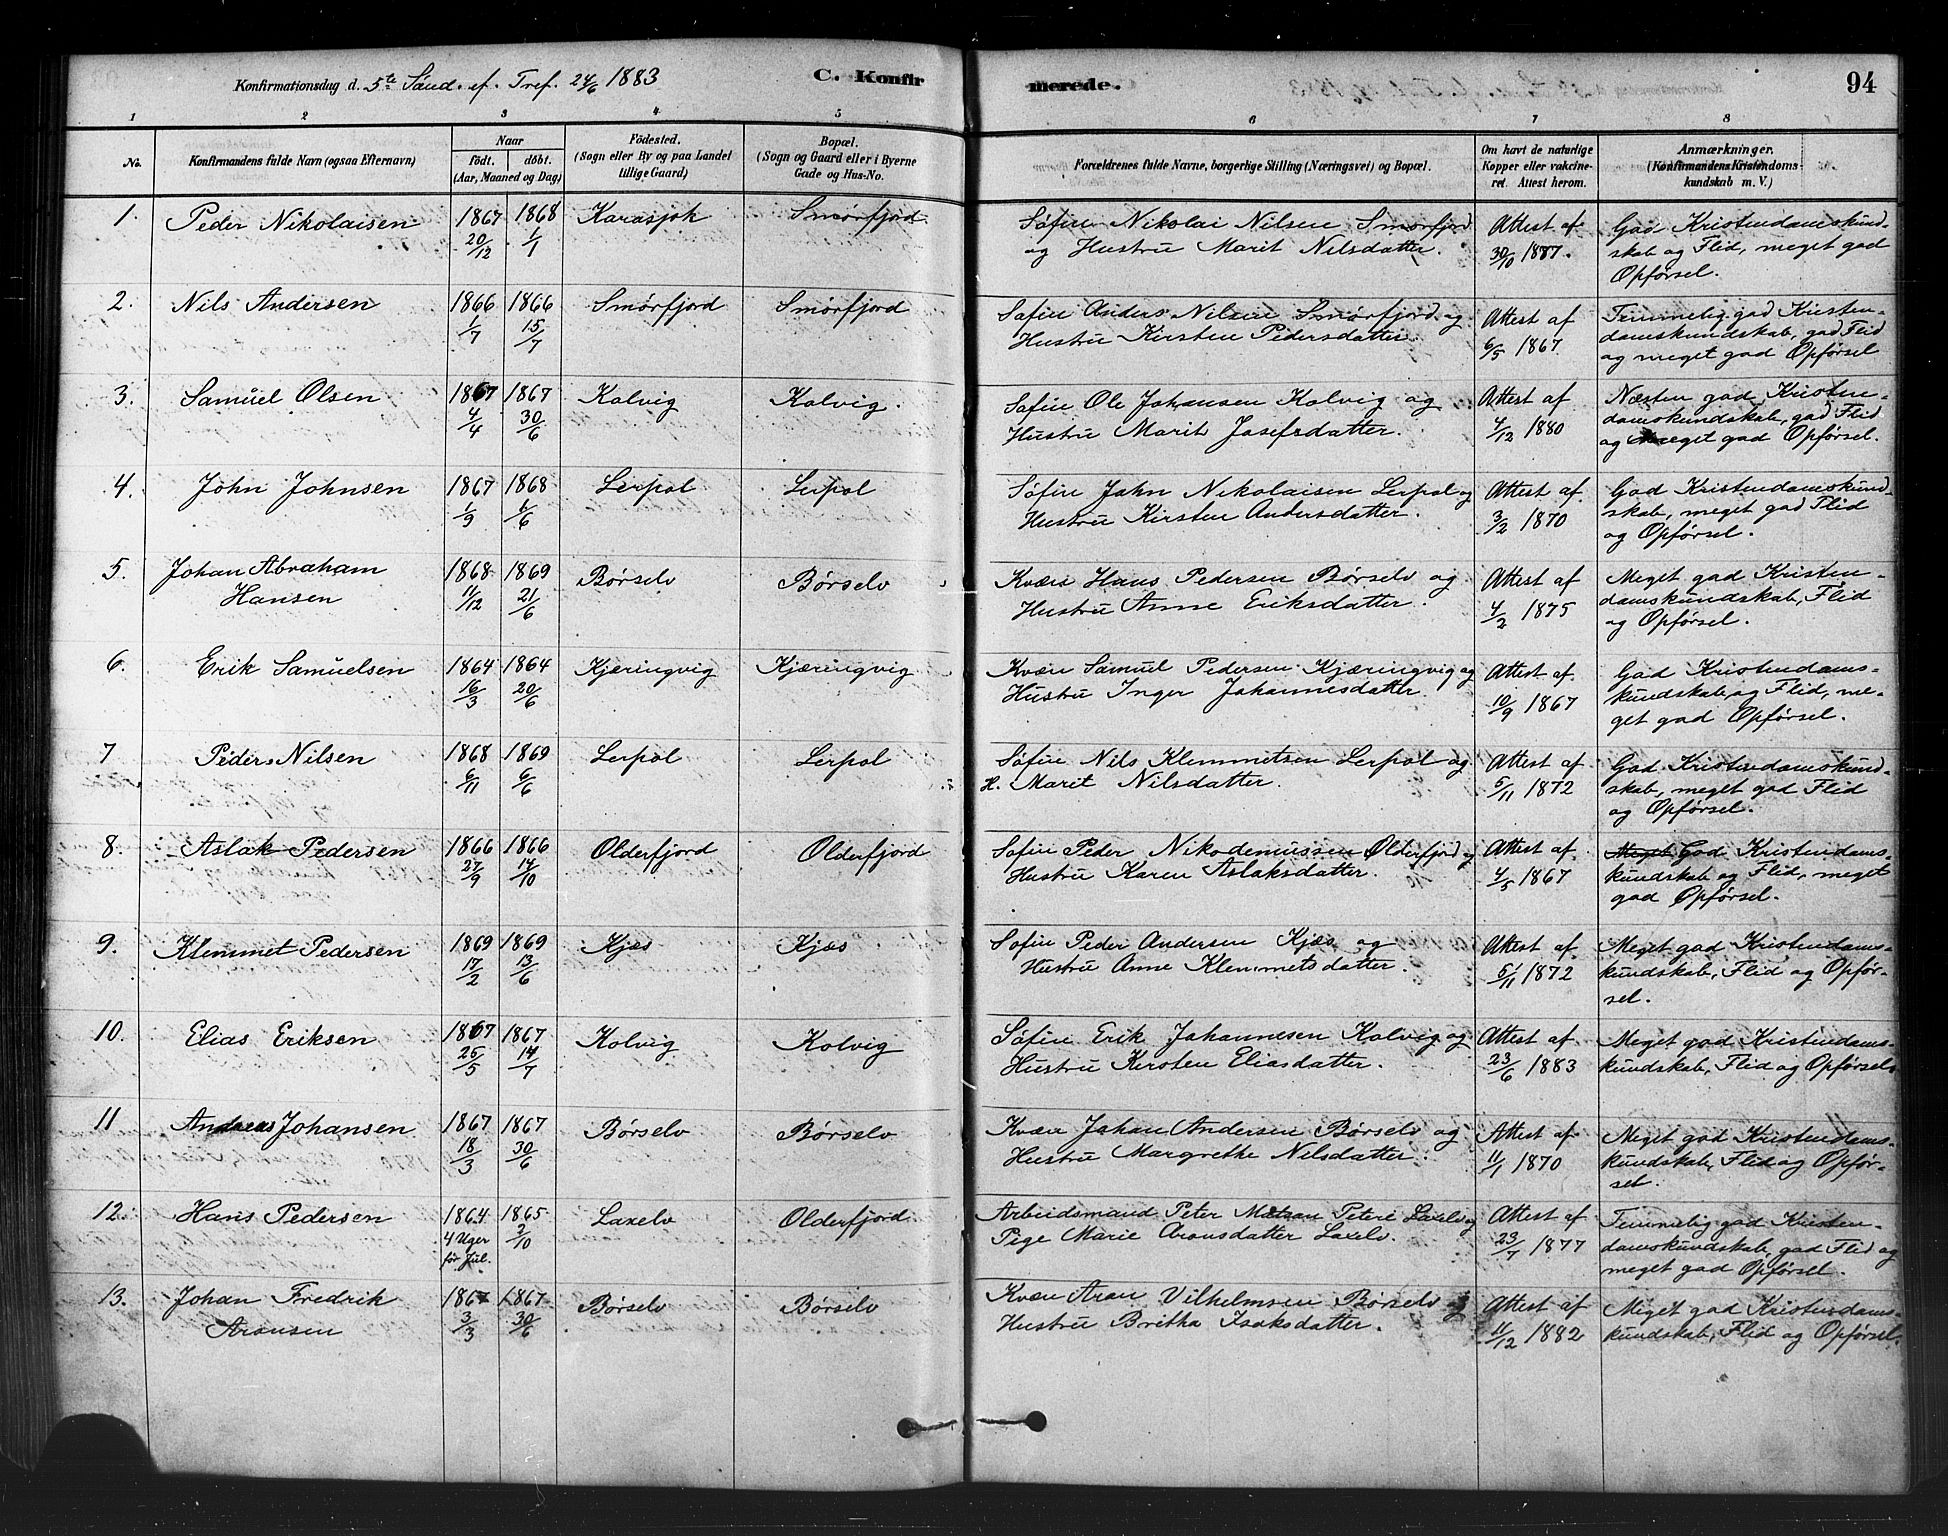 Konfirmationsdag d. 5te Sönd. ef. Tref. 24/6 1883
C. Konfir
merede.
94
1 2 3 4 5 6 7 8
No.
Konfirmandens fulde Navn (ogsaa Efternavn)
Naar
födt. döbt.
(Aar, Maaned og Dag)
Födested.
(Sogn eller By og paa Landet
tillige Gaard)
Bopæl.
(Sogn og Gaard eller i Byerne
Gade og Hus-No.
Forældrenes fulde Navne, borgerlige Stilling (Næringsvei) og Bopæl.
Om havt de naturlige
Kopper eller vakcine-
ret. Attest herom.
Anmærkninger.
(Konfirmandens Kristendoms-
kundskab m. V.)
1. Peder Nikolaisen 1867 20/12 1868 1/1 Karasjok Smørfjord
Søfin Nikolai Nilsen Smørfjord
og Hustru Marit Nilsdatter.
Attest af
30/10 1877.
God Kristendomskund-
skab og Flid, meget god
Opførsel.
2. Nils Andersen 1866 1/7 1866 15/7 Smørfjord Smørfjord
Søfin Anders Nilsen Smørfjord og
Hustru Kirsten Pedersdatter.
Attest af
6/5 1867.
Temmelig god Kristen-
domskundskab, god Flid
og meget god Opførsel
3. Samuel Olsen 1867 4/4 1867 30/6 Kolvig Kolvig.
Søfin Ole Johansen Kolvig og
Hustru Marit Josefsdatter.
Attest af
4/12 1880
Næsten god Kristen-
domskundskab, god Flid
og meget god Opførsel.
4. John Johnsen 1867 1/9 1868 6/6 Lerpol Lerpol
Søfin John Nikolaisen Lerpol og
Hustru Kirsten Andersdatter.
Attest af
3/2 1870
God Kristendomskund-
skab, meget god Flid
og Opførsel.
5. Johan Abraham
Hansen 1868 11/12 1869 21/6 Børselv Børselv
Kvæn Hans Pedersen Børselv og
Hustru Anne Eriksdatter.
Attest af
4/2 1875
Meget god Kristen-
domskundskab, Flid
og Opførsel.
6. Erik Samuelsen 1864 16/3 1864 20/6 Kjæringvig Kjæringvig
Kvæn Samuel Pedersen Kjæringvig og
Hustru Inger Johannesdatter.
Attest af
10/9 1867
God Kristendoms-
kundskab og Flid, me-
get god Opførsel.
7 Peder Nilsen 1868 6/11 1869 6/6 Lerpol Lerpol
Søfin Nils Klemmetsen Lerpol og
H. Marit Nilsdatter.
Attest af
5/11 1872
God Kristendomskund-
skab, meget god Flid
og Opførsel.
8. Aslak Pedersen 1866 27/9 1866 14/10 Olderfjord Olderfjord
Søfin Peder Nikodemussen Olderfjord og
Hustru Karen Aslaksdatter.
Attest af
4/5 1867
Meget God Kristendoms-
kundskab og Flid, meget
god Opførsel.
9. Klemmet Pedersen 1869 17/2 1869 13/6 Kjæs Kjæs
Søfin Peder Andersen Kjæs og
Hustru Anne Klemmetsdatter.
Attest af
5/11 1872
Meget god Kristendoms-
kundskab, Flid og Opfør-
sel.
10. Elias Eriksen 1867 25/5 1867 14/7 Kolvig Kolvig
Søfin Erik Johannesen Kolvig og
Hustru Kirsten Eliasdatter.
Attest af
23/6 1883
Meget god Kristendoms-
kundskab, Flid og Opførsel.
11 Andreas Johansen 1867 18/3 1867 30/6 Børselv Børselv
Kvæn Johan Andersen Børselv og
Hustru Margrethe Nilsdatter.
Attest af
11/1 1870
Meget god Kristendoms-
kundskab, Flid og Opfør-
sel.
12. Hans Pedersen 1864 4 Uger før Jul. 1865 2/10 Laxelv Olderfjord.
Arbeidsmand Peter Matsen Peteri Laxelv og
Pige Marie Aronsdatter Laxelv.
Attest af
23/7 1877
Temmelig god Kristen-
domskundskab, god Flid og
meget god Opførsel.
13. Johan Fredrik
Aronsen 1867 3/3 1867 30/6 Børselv Børselv
Kvæn Aron Vilhelmsen Børselv og
Hustru Britha Isaksdatter.
Attest af
11/12 1882
Meget god Kristendoms-
kundskab, Flid og Opførsel.